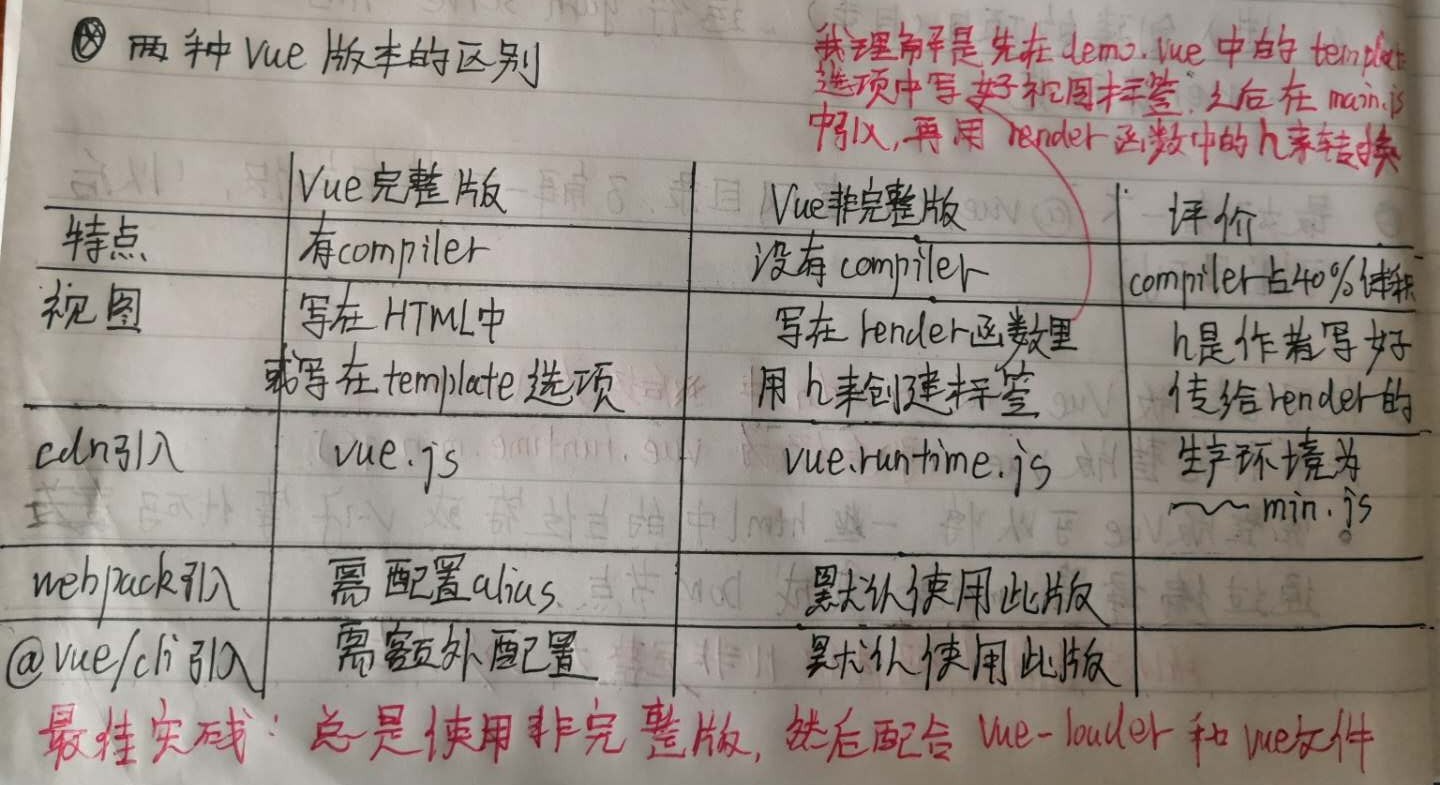 ⊗ 两种Vue版本的区别
我理解是先在demo.vue中的template
选项中写好视图标签,之后在main.js
中引入,再用render函数中的h来转换
Vue完整版 Vue非完整版 评价
特点 有compiler 没有compiler compiler占40%体积
视图 写在HTML中 写在render函数里 h是作者写好
或写在template选项 用h来创建标签 传给render的
cdn引入 vue.js vue.runtime.js 生产环境为
~~min.js
webpack引入 需配置alias 默认使用此版
@vue/cli引入 需额外配置 默认使用此版
最佳实践:总是使用非完整版,然后配合vue-loader和vue文件